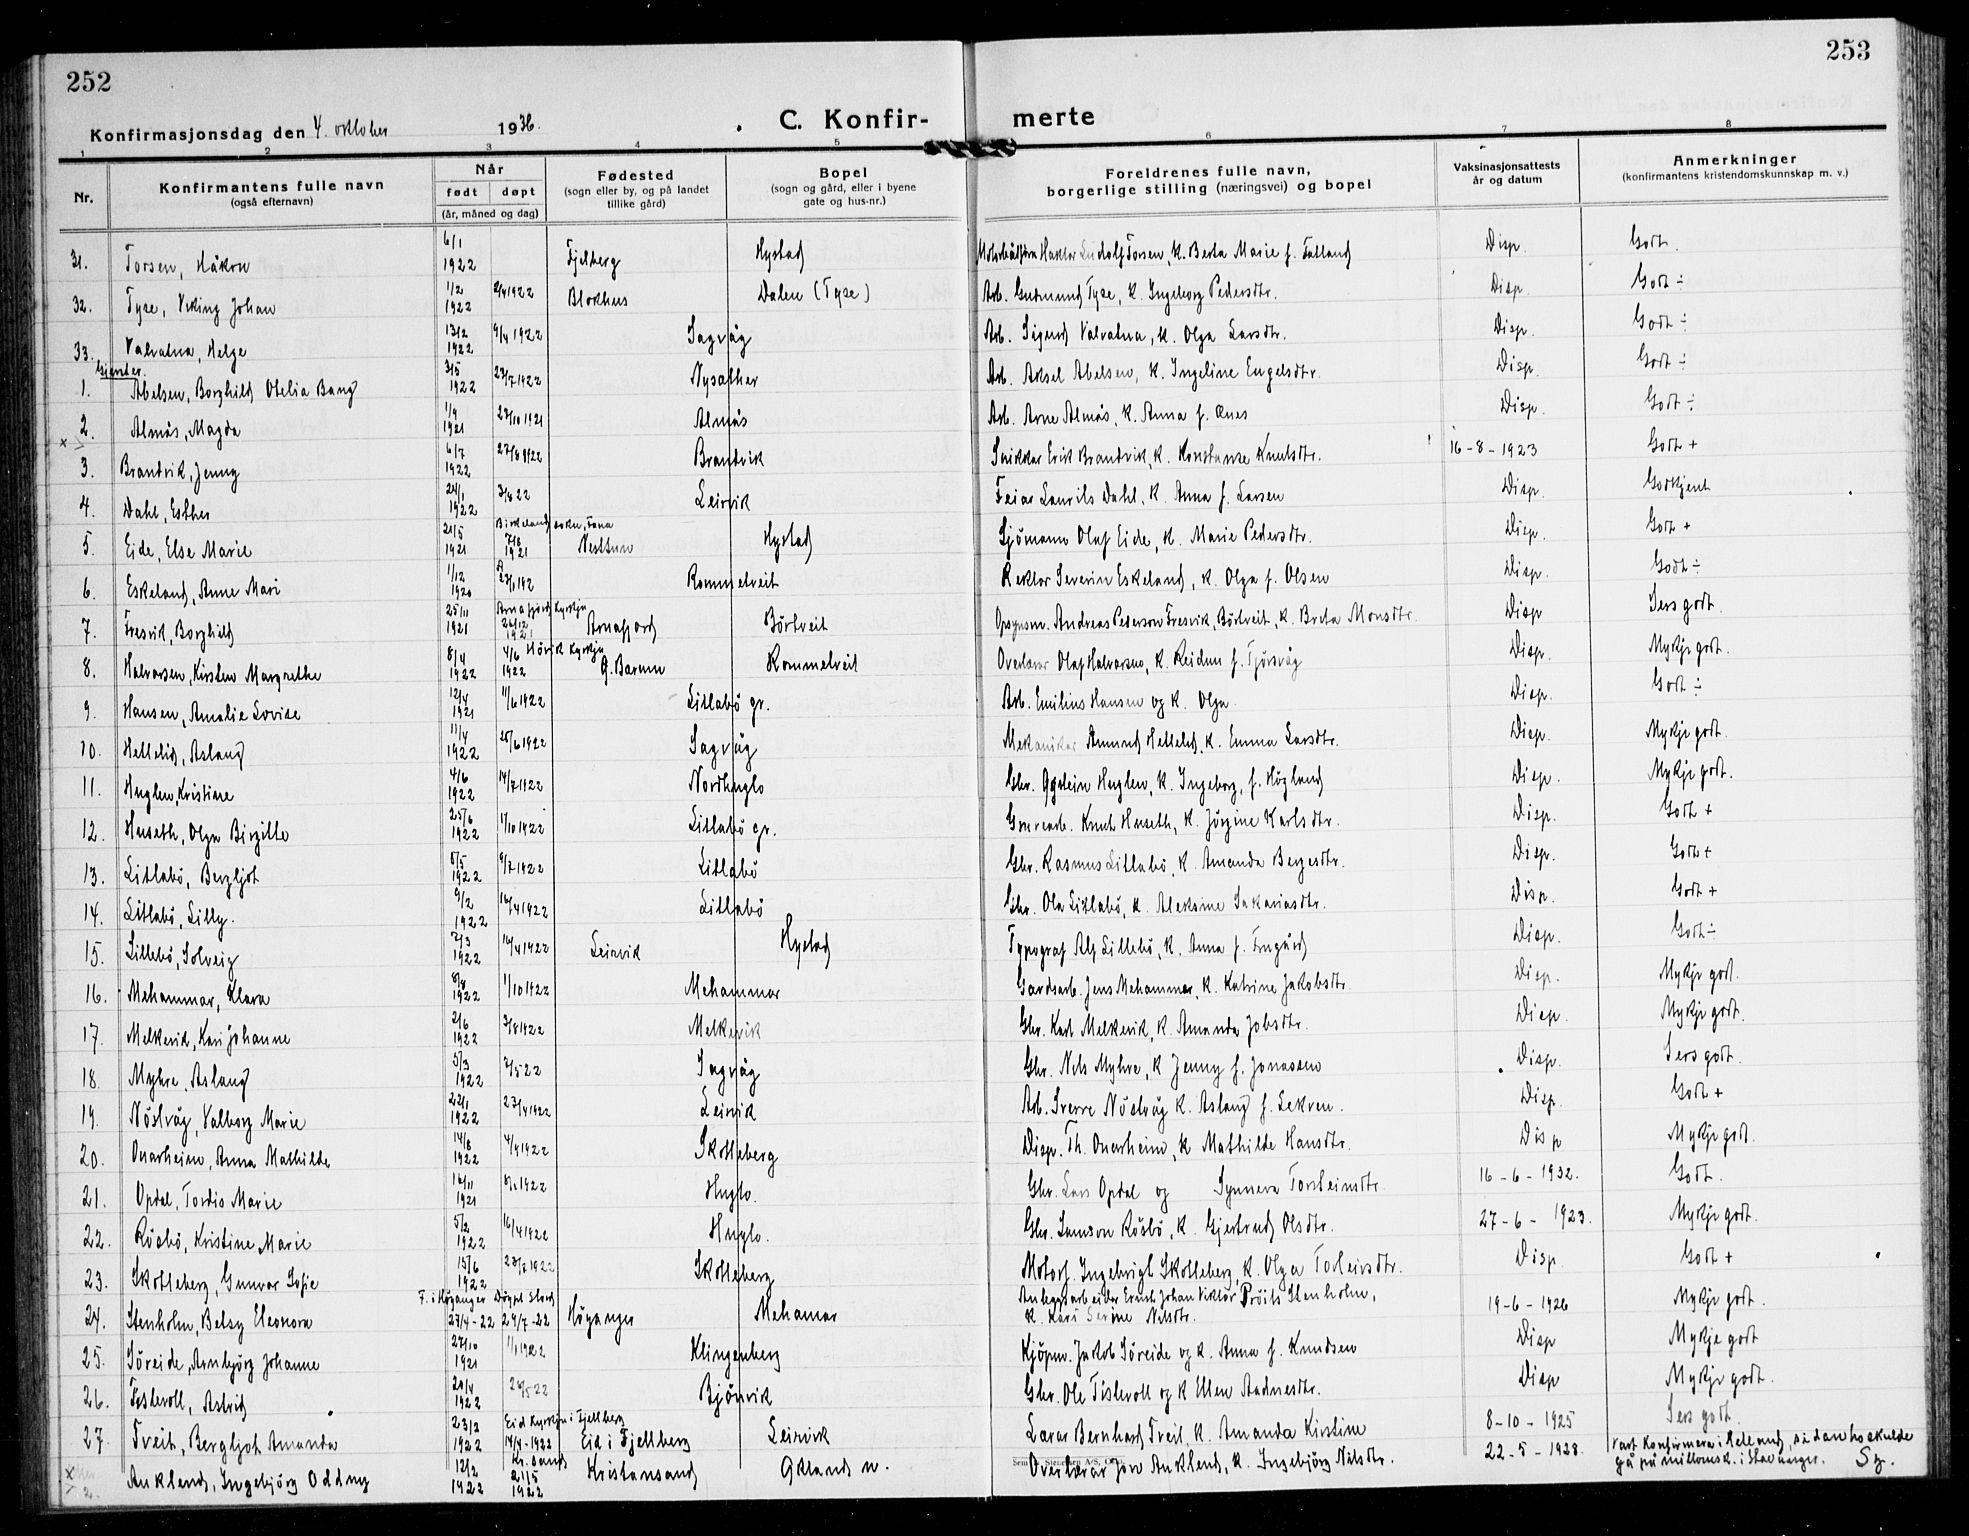 252
253
Konfirmasjonsdag den 4. oktober 1936.
C. Konfir-
merte
1 2 3 4 5 6 7 8
Nr.
Konfirmantens fulle navn
(også efternavn)
Når
født døpt
(år, måned og dag)
Fødested
(sogn eller by, og på landet
tillike gård)
Bopel
(sogn og gård, eller i byene
gate og hus-nr.)
Foreldrenes fulle navn,
borgerlige stilling (næringsvei) og bopel
Vaksinasjonsattests
år og datum
Anmerkninger
(konfirmantens kristendomskunnskap m. v.)
31. Torsen, Håkon 6/1 1922 Fjelberg Hystad Ludolf Torsen, k. Berta Marie f. Tatland Disp. Godt.
32. Tyse, Viking Johan 1/2 1922 2/4 1922 Blokhus Dalen (Tyse) Arb. Gudmund Tyse, k. Ingeborg Pedersdtr. Disp. Godt ÷
33. Valvatna, Helge 13/2 1922 9/4 1922 Sagvåg Arb. Sigurd Valvatna, k. Olga Larsdtr. Disp. Godt ÷
Gjenter.
1. Abelsen, Borghild Otelia Bang 3/5 1922 23/7 1922 Nysæther Arb. Aksel Abelsen, k. Ingeline Engelsdtr. Disp. Godt ÷
2. Almås, Magda 1/9 1921 23/10 1921 Almås Arb. Arne Almås, k. Anna f. Ænes Disp. Godt ÷
3. Brandvik, Jenny 6/7 1922 27/8 1922 Brandvik Snikkar Erik Brandvik, k. Konstanse Knutsdtr. 16-8-1923 Godt +
4. Dahl, Esther 24/1 1922 3/9 22 Leirvik Feiar Laurits Dahl, k. Anna f. Larsen Disp. Godkjent
5. Eide, Else Marie 21/5 1921 Birkeland sokn, Fana 7/8 1921 Nesttun Hystad Sjömann Olaf Eide, k. Marie Pedersdtr. Disp. Godt +
6. Eskeland, Anne Mari 1/12 1920 Rommetveit Rektor Severin Eskeland, k. Olga f. Olsen Disp. Godt ÷
7. Fresvik, Borghild 25/11 1921 Arnafjord kyrkje 26/12 1921 Arnafjord Börtveit Opsynsm. Andreas Pederson Fresvik, Börtveit, k. Brita Monsdtr. Disp Sers godt.
8. Halvorsen, Kirsten Margrethe 8/4 1922 4/6 1922 Hövik kyrkje Ö. Bærum Rommetveit Overlærar Olaf Halvorsen, k. Reidun f. Tjörsvåg Disp. Mykje godt.
9. Hansen, Amalie Lovise 12/4 1921 11/6 1922 Litlabö gr. Arb. Emilius Hansen og k. Olga Disp. Godt ÷
10. Hellelid, Aslaug 11/4 1922 25/6 1922 Sagvåg Mekanikar Amund Hellelid, k. Emma Larsdtr. Disp. Mykje godt.
11. Huglen, Kristiane 4/6 1922 14/7 1922 Nordhuglo Gbr. Øystein Huglen, k. Ingeborg, f. Högland Disp. Mykje godt.
12. Huseth, Olga Birgitte 25/6 1922 1/10 1922 Litlabö gr. Gruvearb. Knut Huseth, k. Jörgine Karlsdtr. Disp. Godt +
13. Litlabö, Bergljot 5/5 1922 9/7 1922 Litlabö Gbr. Rasmus Litlabö, k. Amanda Bergesdtr. Disp. Godt +
14. Litlabö, Lilly. 9/2 1922 16/4 1922 Litlabö Gbr. Ola Litlabö, k. Aleksine Sakariasdtr. Disp. Godt +
15. Lillebö, Solveig 2/3 1922 16/4 1922 Leirvik Hystad Typograf Alf Lillebö, k. Anna f. Disp. Godt ÷
16. Mehammar, Klara 8/8 1922 1/10 1922 Mehammar Gardsarb. Jens Mehammer, k. Katrine Jakobsdtr. Disp. Mykje godt.
17. Melkevik, Kari Johanne 2/6 1922 3/8 1922 Melkevik Gbr. Karl Melkevik, k. Amanda Jobsdtr. Disp. Mykje godt.
18. Myhre, Aslaug 5/3 1922 7/5 22 Sagvåg Gbr. Nils Myhre, k Jenny f. Jonassen Disp. Sers godt.
19. Nöstvåg, Valborg Marie 22/1 1922 23/4 1922 Leirvik Arb. Sverre Nöstvåg k. Aslaug f. Lekven. Disp. Godt +
20. Onarheim, Anna Mathilde 14/8 1922 4/4 1922 Skotteberg Disp. Th. Onarheim, k Mathilde Hansdtr. Disp Mykje godt.
21. Opdal, Tordis Marie 16/11 1921 8/1 1922 Huglo. Gbr. Lars Opdal og Synneva Torsteinsdtr. 16-6-1932. Godt.
22. Rösbö, Kristine Marie 5/2 1922 16/4 1922 Huglo. Gbr. Samson Rösbö, k. Gjertrud Olsdtr. 27-6-1923. Mykje godt.
23. Skotteberg, Gunvor Sofie 15/6 1922 23/7 1922 Skotteberg Motorf. Ingebrigt Skotteberg, k. Olga Torleivsdtr. Disp. Godt +
24. Stenholm, Betsy Eleonora F. i Høyanger Døypt Stord 27/4-22 29/7-22 Höyanger Mehamar Anleggsarbeider Ernst Johan Viktor Pröits Stenholm,
k. Kari Serine Nilsdtr. 19-6-1926 Mykje godt.
25. Söreide, Arnbjörg Johanne 27/10 1921 1/1 1922 Klingenberg Kjöpm. Jakob Söreide og k. Anna f. Knudsen Disp Mykje godt
26. Tislevoll, Astrid 20/4 1922 26/5 22 Bjönvik Gbr. Ole Tislevoll og k Ellen Andnesdtr. Disp Mykje godt.
27. Tveit, Bergljot Amanda 23/2 1922 Eid kyrkje i Fjellberg 14/4-1922 Eid i Fjellberg Leirvik Lærar Bernhard Tveit, k. Amanda Kirstine 8-10-1925 Sers godt.
Aukland, Ingebjörg Oddny 12/2 1922 Kr.sand 21/5 1922 Kristansand Økland n. Overlærar Jon Aukland, k. Ingebjörg Nilsdtr. 22-5-1928. Vart konfirmera i Heland, sidan ho skulde
gå på millomsk. i Stavanger. Sg.